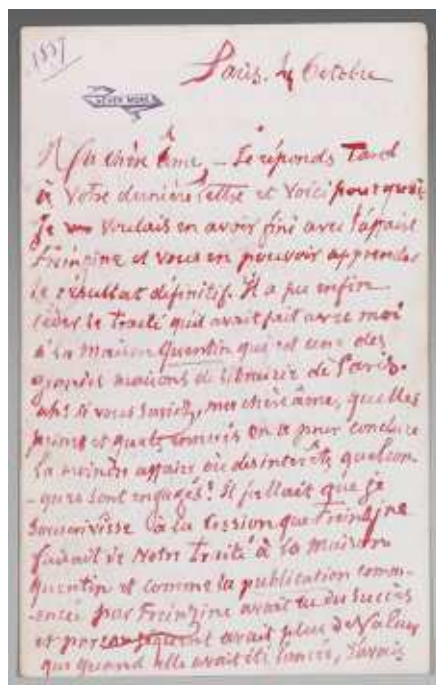 1887
Paris. 4 Octobre
NEVER MORE
Ma chère âme – Je réponds Tard
à votre dernière lettre et voici pourquoi
Je voulais en avoir fini avec l'affaire
Freinzine et vous en pouvoir apprendre
le résultat définitif. Il a pu enfin
céder le Traité qu'il avait fait avec moi
à la Maison Quentin qui est une des
grandes maisons de librairie de Paris.
ah! si vous saviez, ma chère âme, quelles
peines et quels ennuis on a pour conclure
la moindre affaire où des intérêts quelcon-
-ques sont engagés! Il fallait que je
souscrivisse à la Cession que Freinzine
faisait de Notre Traité à la maison
Quentin et comme la publication comm-
-encée par Freinzine avait eu du succès
et par conséquent avait plus de Valeur
que quand elle avait été lancée, j'avais